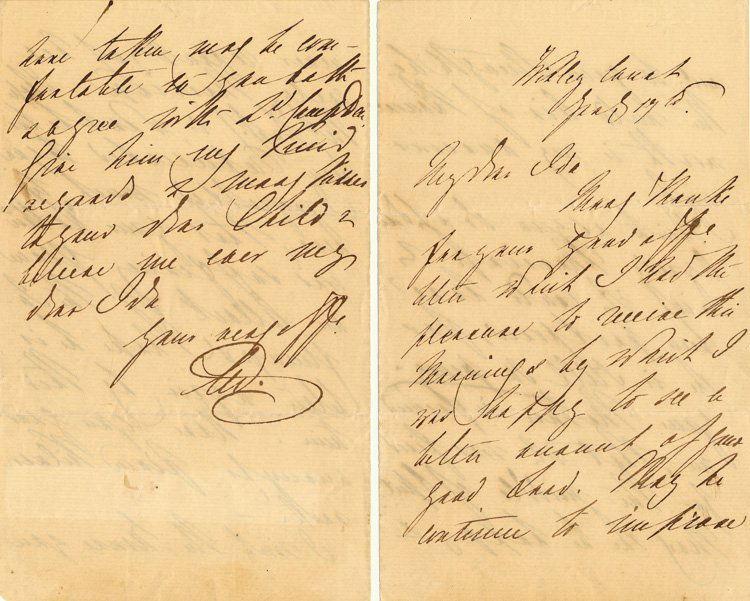 Witley Court
My dear Ida
Many thanks
for your good affte
letter which I had the
pleasure to receive this
Morning & by which I
was happy to see a
better account of your
good Lord. May he
continue to improve
have taken may be com-
fortable to you both
agree with
Give him my kind
regards & many kisses
to your dear Child &
believe me ever my
dear Ida
Yours very affte